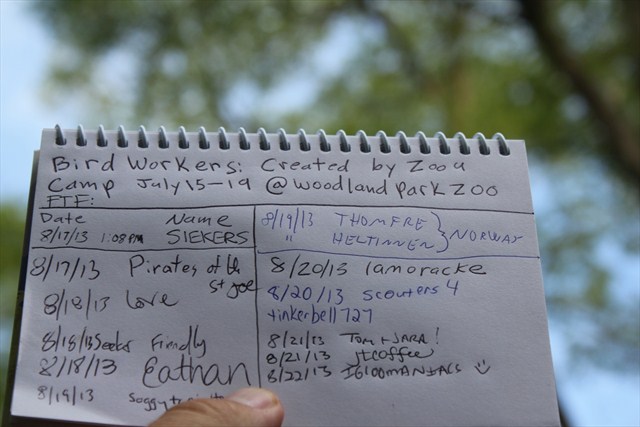 Bird Workers: Created by Zoo u
Camp July 15-19 @ Woodland Park Zoo
FTF:
Date Name
8/17/13 1:08PM SIEKERS
8/17/13 Pirates of
St Joe
8/18/13 Love
8/18/13 Seeks Firmly
8/18/13 Eathan
8/19/13 Soggy
8/19/13 THOMFRE
" HELTINNEN } NORWAY
8/20/13 lamoracke
8/20/13 scouters 4
tinkerbell727
8/21/13 Tom + JARA!
8/21/13 jtcoffee
8/22/13